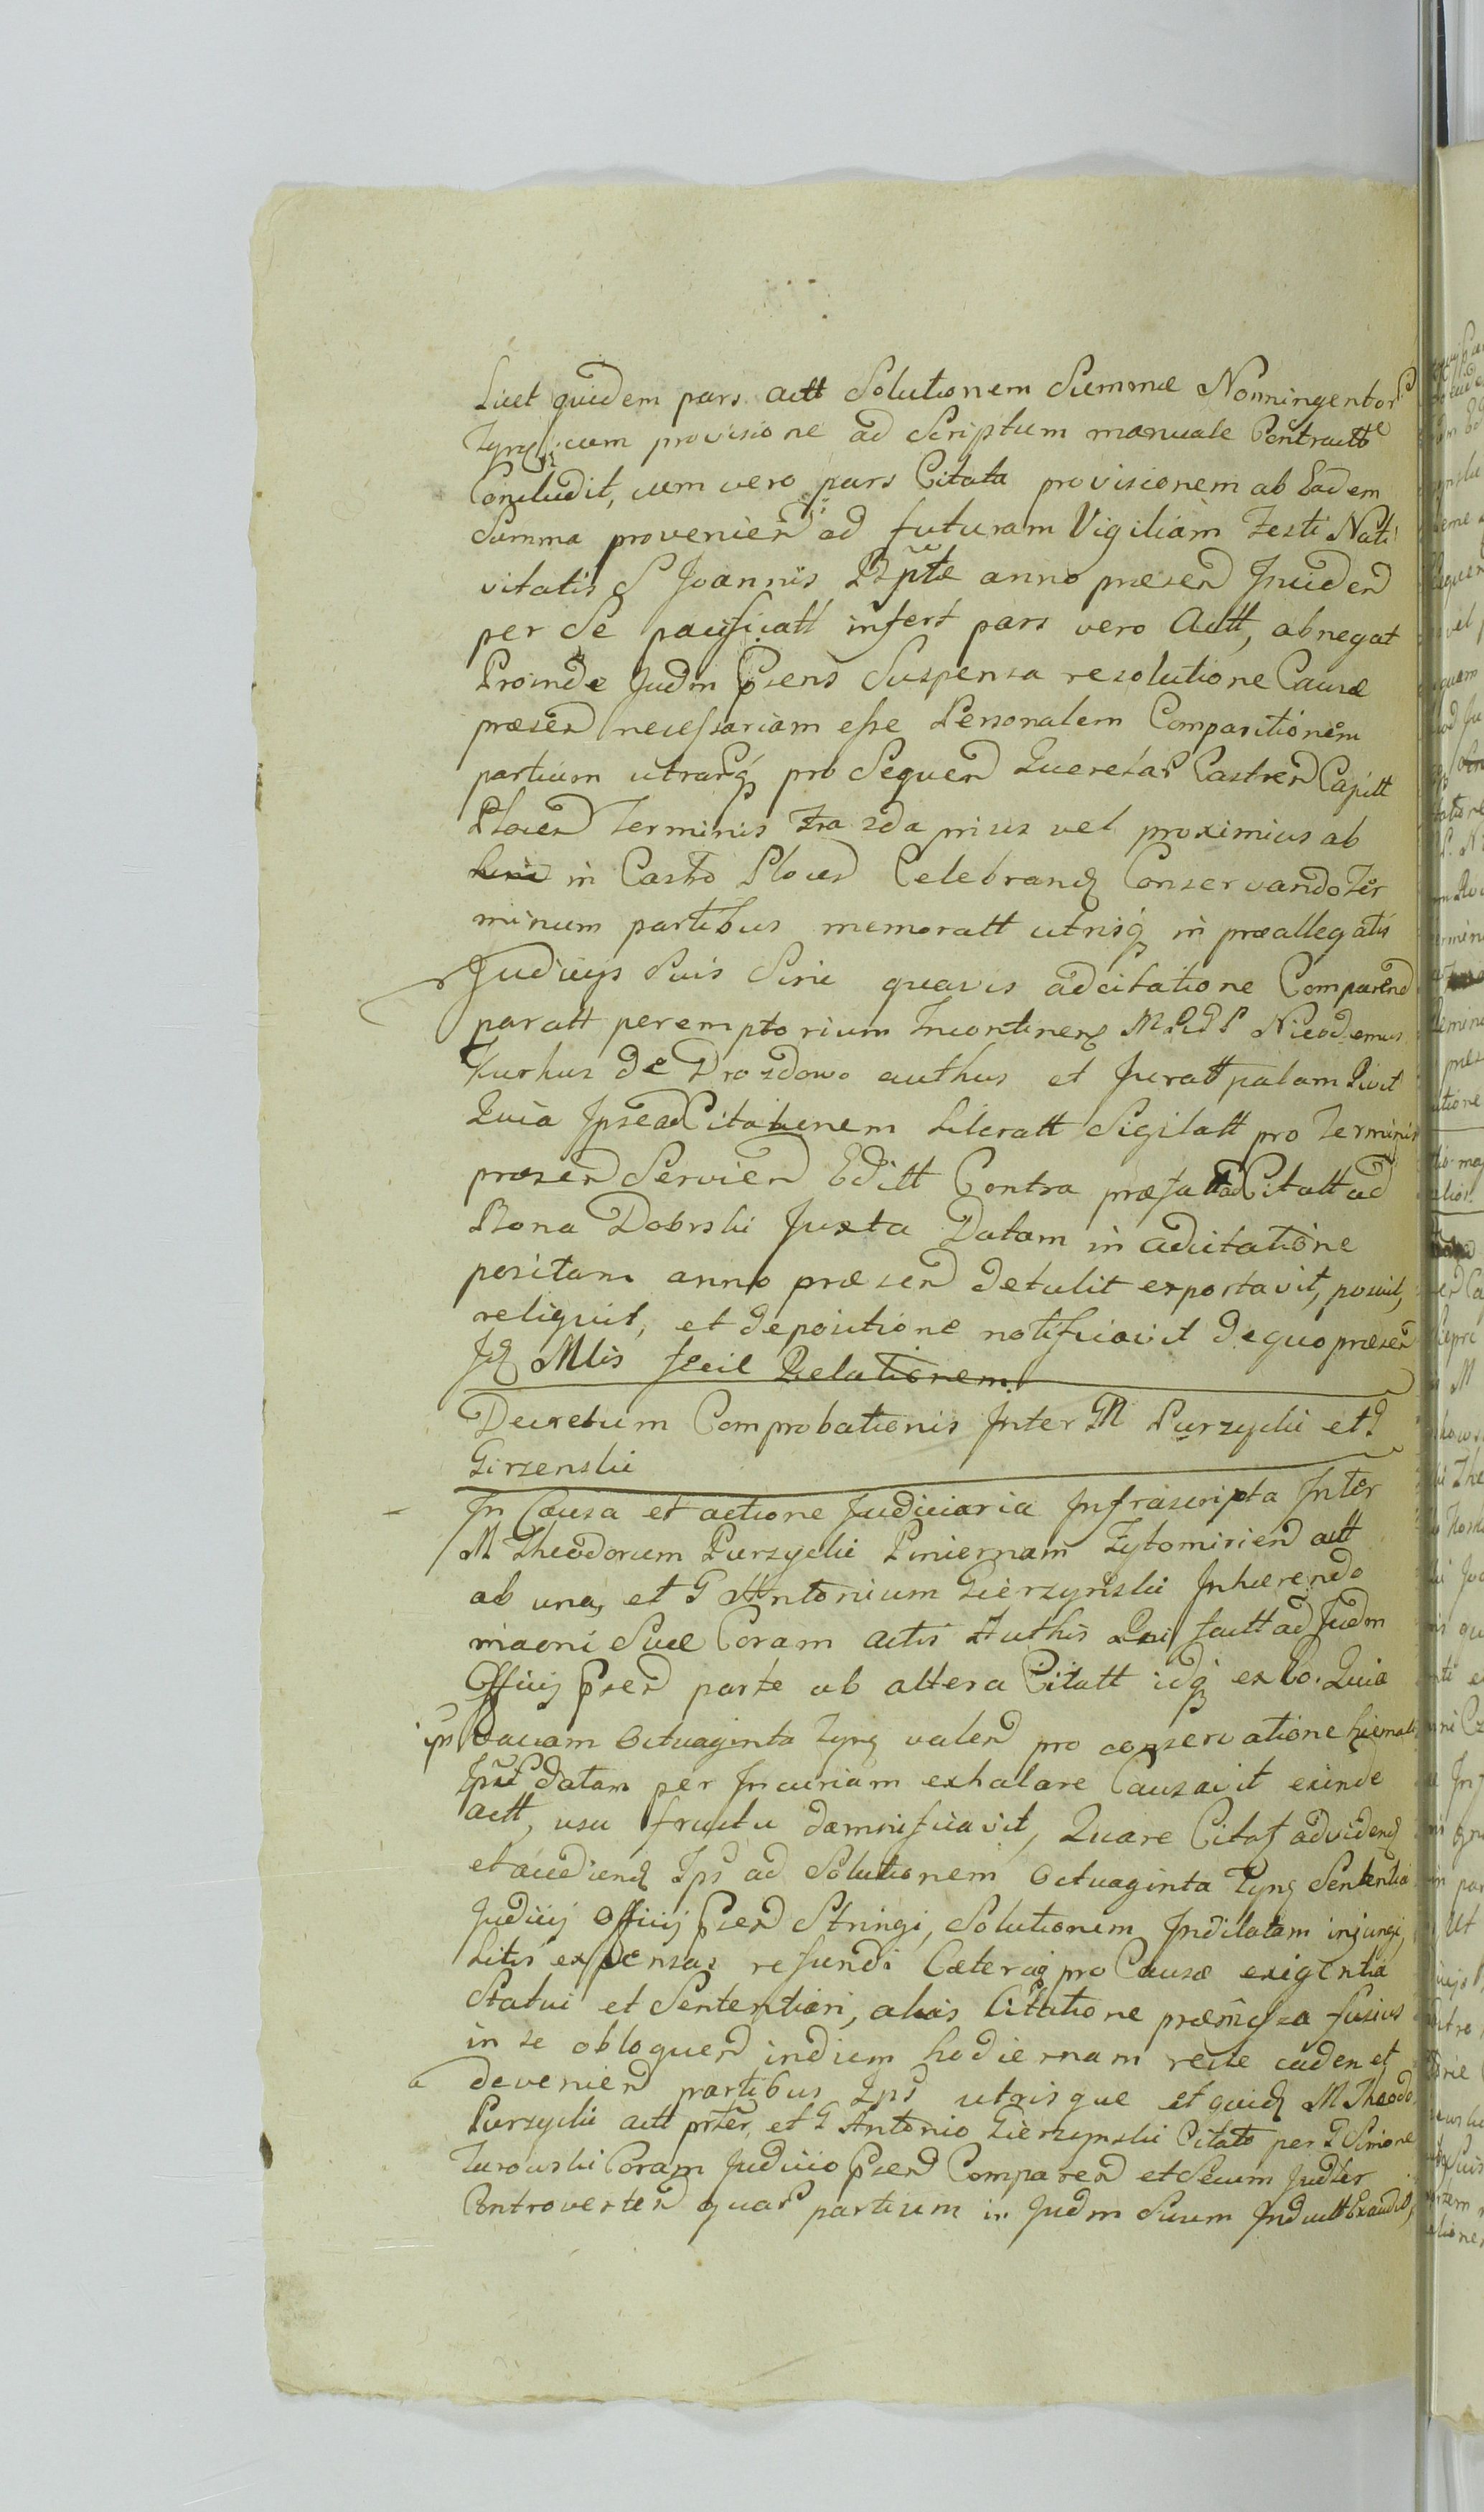 Licet quidem pars actt Solutionem Summæ Nonningentor
cum provisione ad Scriptum manuale Contractt
Concludit, cum vero pars Citata provisionem ab Eadem
Summa provenien ad futuram Vigiliam Festi Nati
vitatis S Joannis Bptæ anno præsen Inciden
per Se pacificatt infert pars vero Actt, abnegat
Proinde Judm Psens Suspensa resolutione Causæ
præsen necessariam esse Personalem Comparitionem
partium utrarq pro Sequen Querelar Castren Capitt
Plocen Terminis Fra 2da prius vel proximius ab
hinc in Castro Plocen Celebrand Conservando Ter
minum partibus memoratt utrisq in præallegatis
Judicys Suis Sine quavis adcitatione Comparend
paratt peremptorium Incontinen M Nicodemus
Kurkus de Drozdowo authus et Juratt palam
Quia Ipse adCitationem Literatt Sigilatt pro Terminis
præsen Servien Editt Contra præfatt adCitatt ad
Bona Dobrski Juxta Datam in adcitatione
positam anno præsen detulit exportavit, posuit,
reliquit, et depositione notificavit de quo præsen
Mlis fecit Relationem
Decretum Comprobationis Inter M Purzycki et G
Girzenski
In Causa et actione Judiciaria Infrascripta Inter
M Theodorum Purzycki Pincernam Zytomirien actt
ab una, et G Antonium Gierzynski Inhærendo
maoni Suæ Coram actis Authis factt ad Judm
Officij Psen parte ab altera Citatt idq ex Eo. Quia
ips Vacam Octuaginta valen pro conservatione hiemali
datam per Incuriam exhalare Causavit exinde
actt, usu fructu damnificavit, Quare Citat ad videnq
et audienq Ips ad Solutionem Octuaginta Sententia
Judicij Officij Psen Stringi, Solutionem Indilatam injungi,
Litis expensas refundi Cæteraq pro Causæ exigentia
Statui et Sententiari, alias Citatione præmissa fusius
in se obloquen in diem hodiernam recte caden et
devenien partibus Ips utrisque et quid M Theodo
Purzycki actt prter, et G Antonio Gierzynski Citato per G Simone
Turowski Coram Judicio Psen Comparen et Secum Judter
Controverten quar partium in Judm Suum Inductt Exauditis,